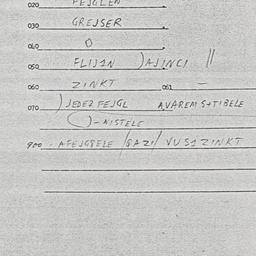 020 FEJGLEN
030 GREJSER
040 O
050 FLIJAN )AJINCI //
060 ZINKT 061 —
070 )JEDEZ FEJGL AVAREM S+TIBELE
( )-NISTELE
900 - AFEJGBELE /GAZI/ VUSIZINKT